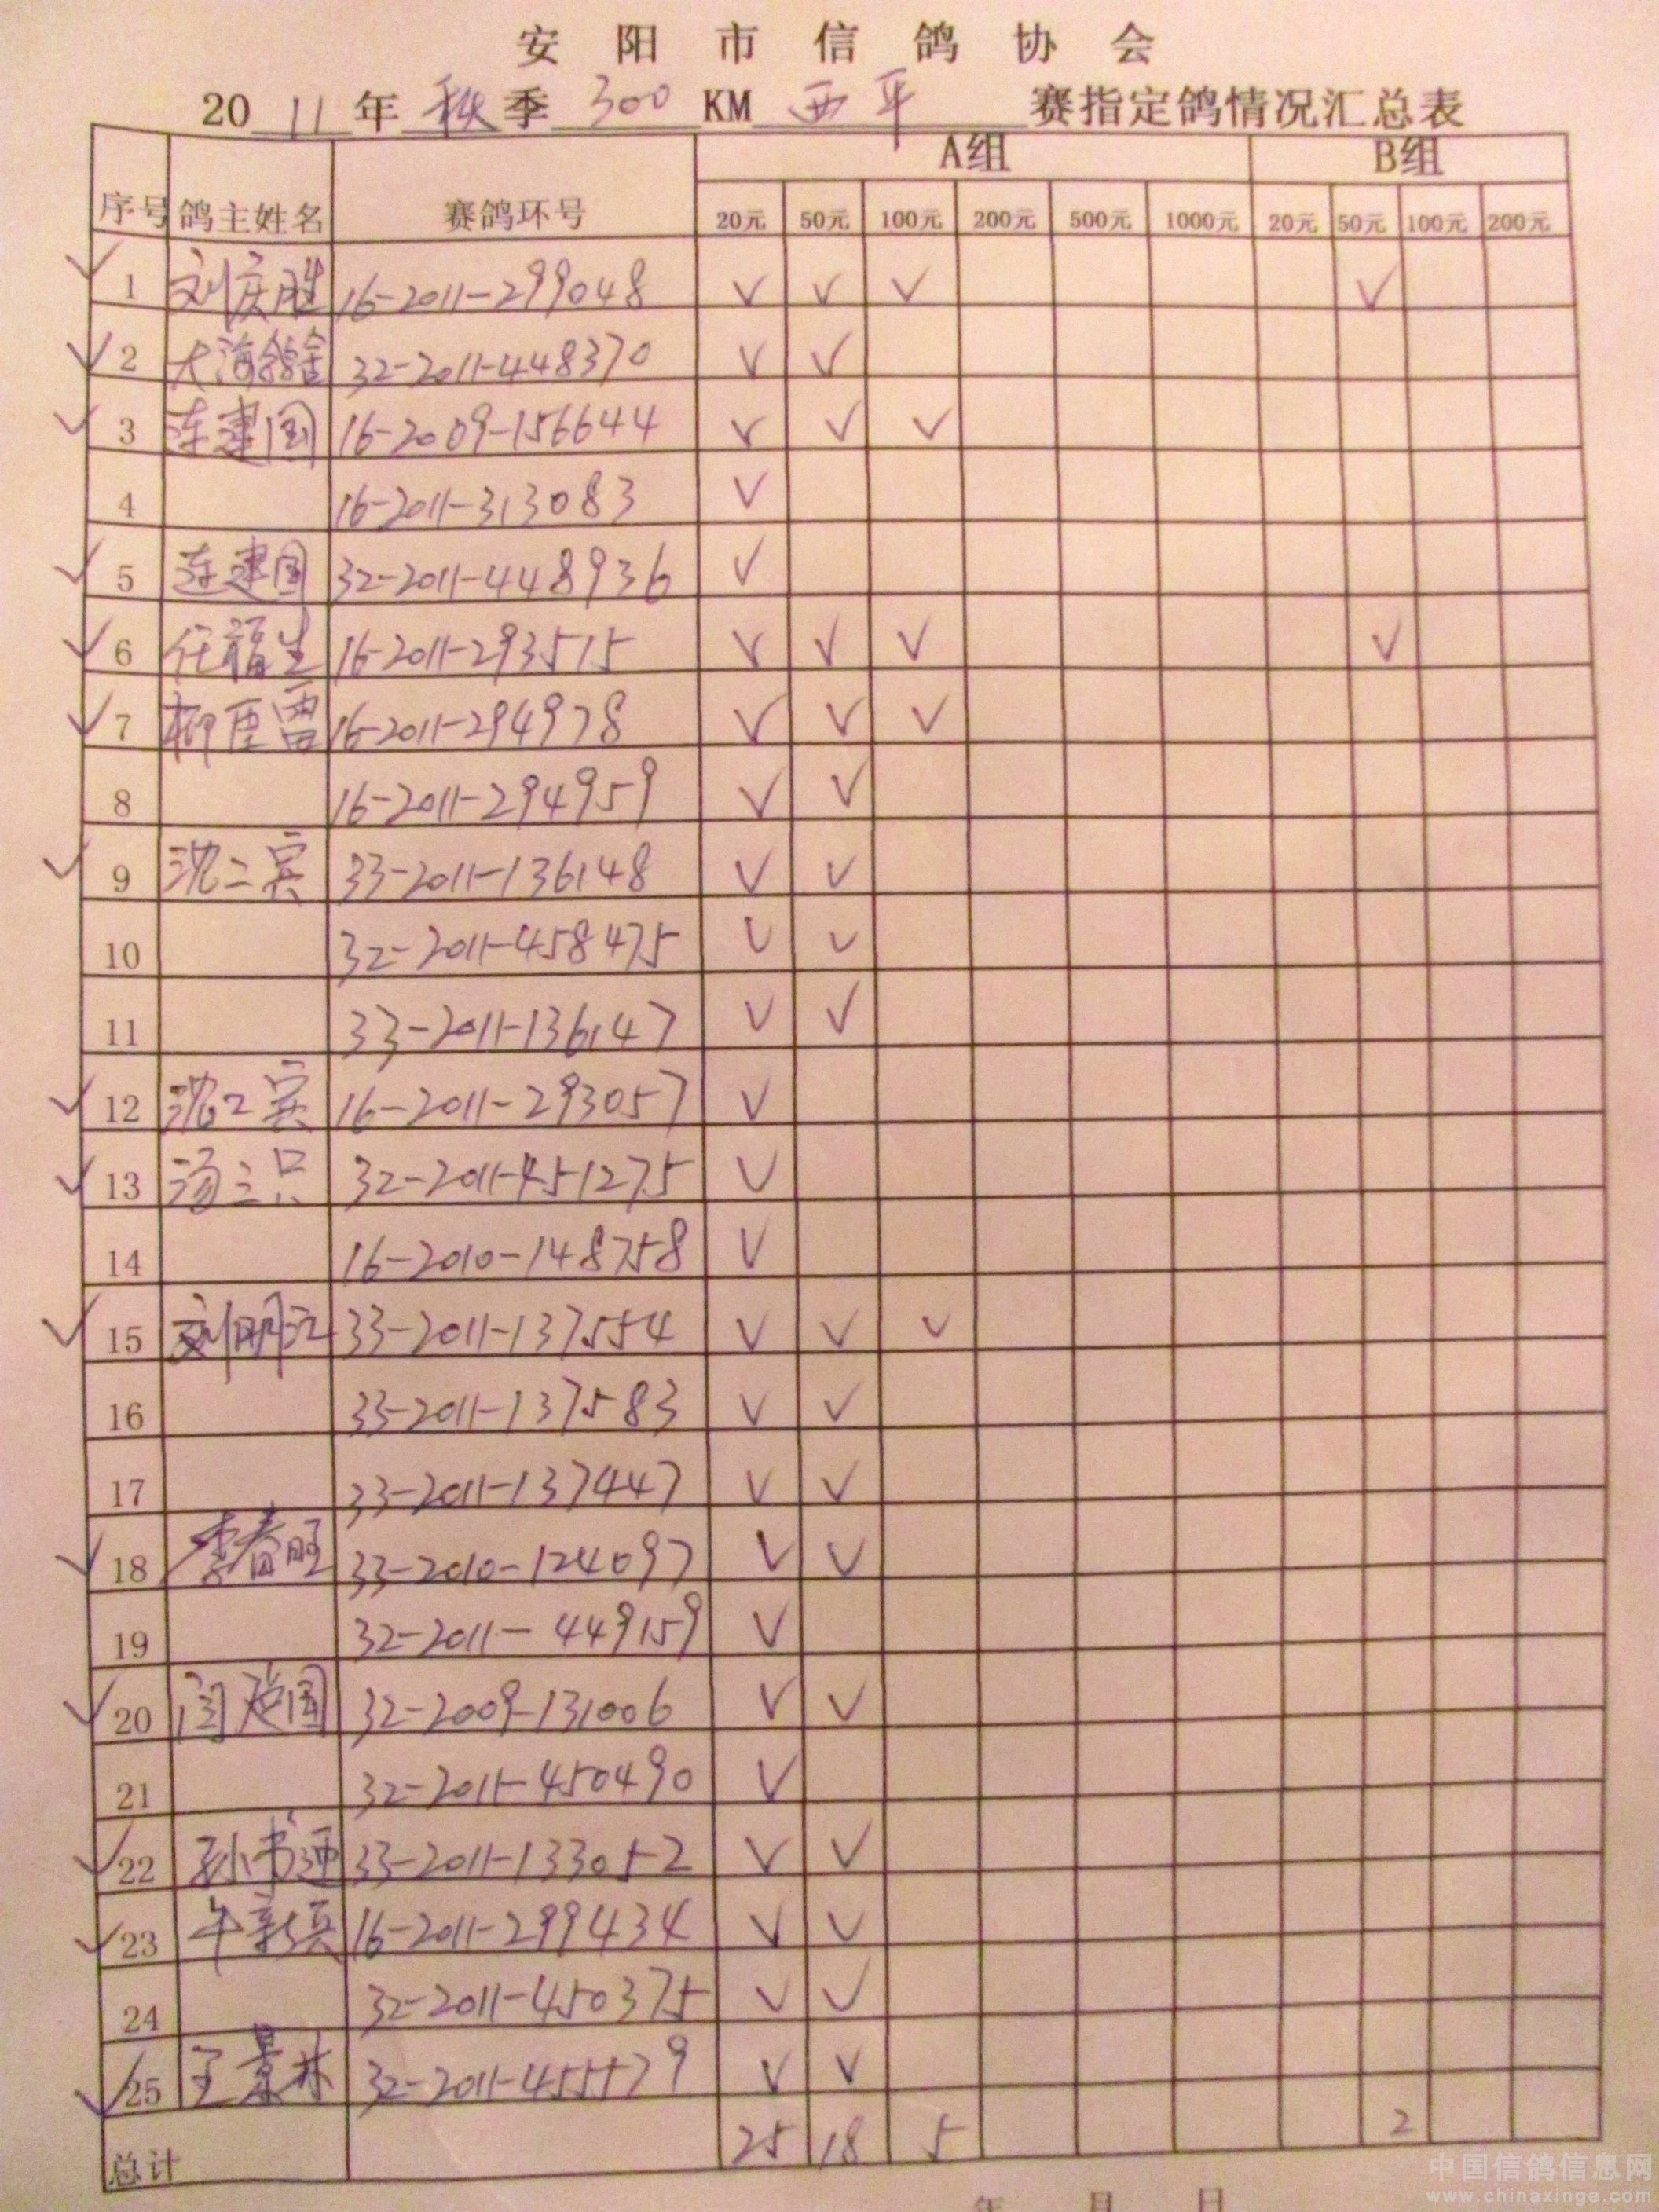 安阳市信鸽协会
2011年秋季300KM西平赛指定鸽情况汇总表
序号 鸽主姓名 赛鸽环号 A组 B组
20元 50元 100元 200元 500元 1000元 20元 50元 100元 200元
1 刘庆胜 16-2011-299048 √ √ √ √
2 大海鸽舍 32-2011-448370 √ √
3 连建国 16-2009-156644 √ √ √
4 16-2011-313083 √
5 连建国 32-2011-448936 √
6 任福生 16-2011-293515 √ √ √ √
7 柳 16-2011-294978 √ √ √
8 16-2011-294959 √ √
9 沈二宾 33-2011-136148 √ √
10 32-2011-458475 √ √
11 33-2011-136147 √ √
12 沈二宾 16-2011-293057 √
13 汤三只 32-2011-451275 √
14 16-2010-148758 √
15 刘明江 33-2011-137554 √ √ √
16 33-2011-137583 √ √
17 33-2011-137447 √ √
18 李春旺 33-2010-124097 √ √
19 32-2011-449159 √
20 闫国 32-2009-131006 √ √
21 32-2011-450490 √
22 孙书 33-2011-133052 √ √
23 牛新兵 16-2011-299434 √ √
24 32-2011-450375 √ √
25 王景林 32-2011-455579 √ √
总计 25 18 5 2
年 月 日
中国信鸽信息网
www.chinaxinge.com